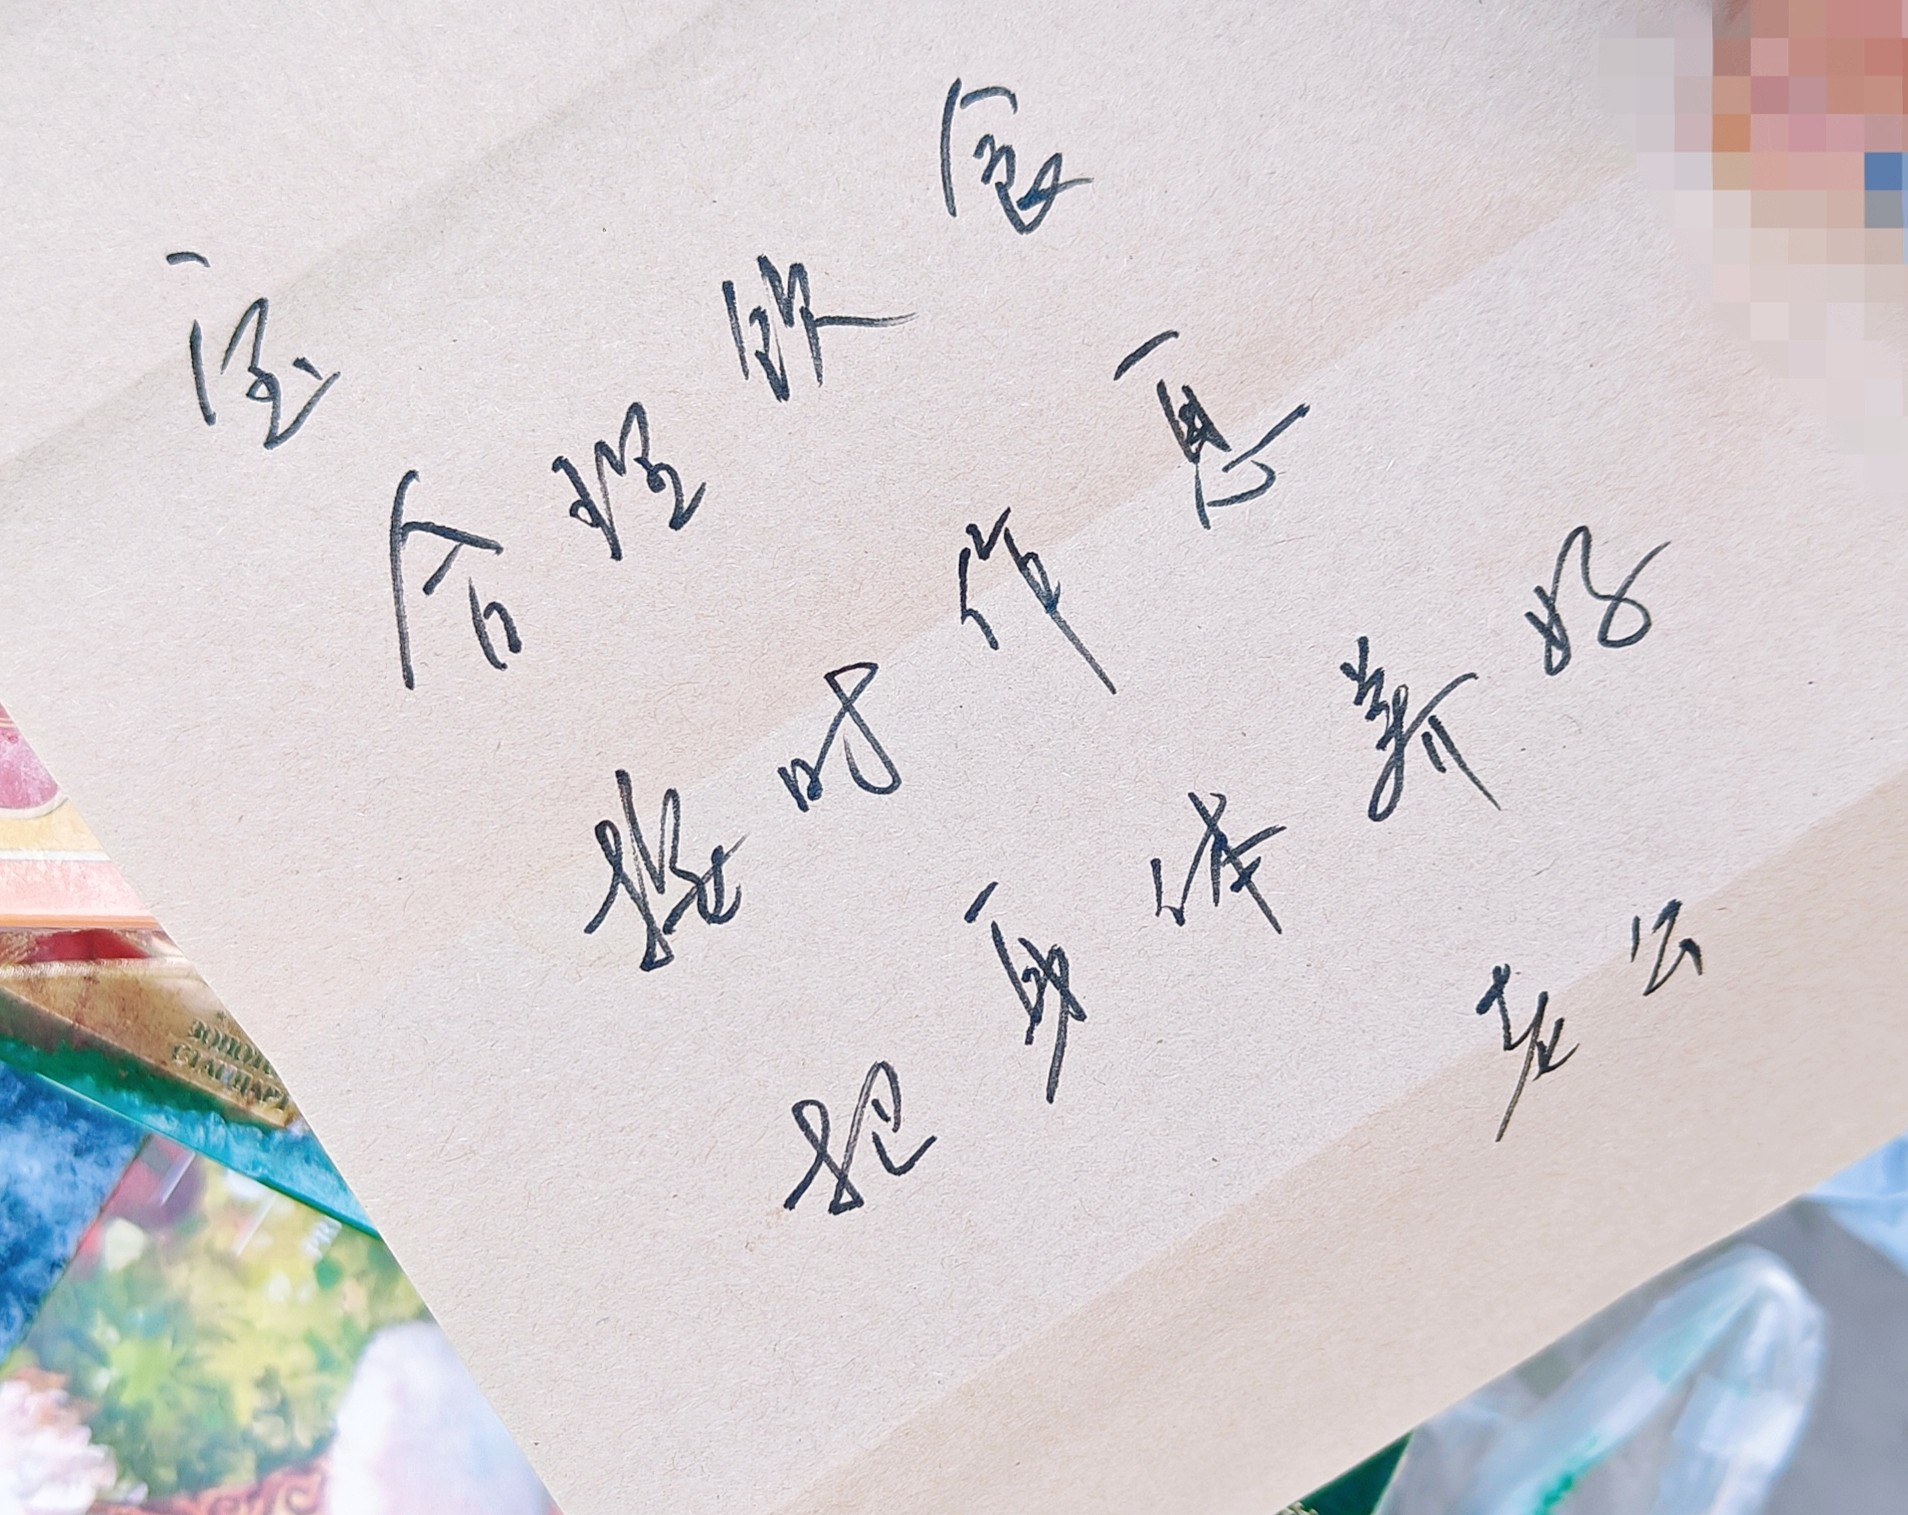 宝
合理饮食
按时作息
把身体养好
老公